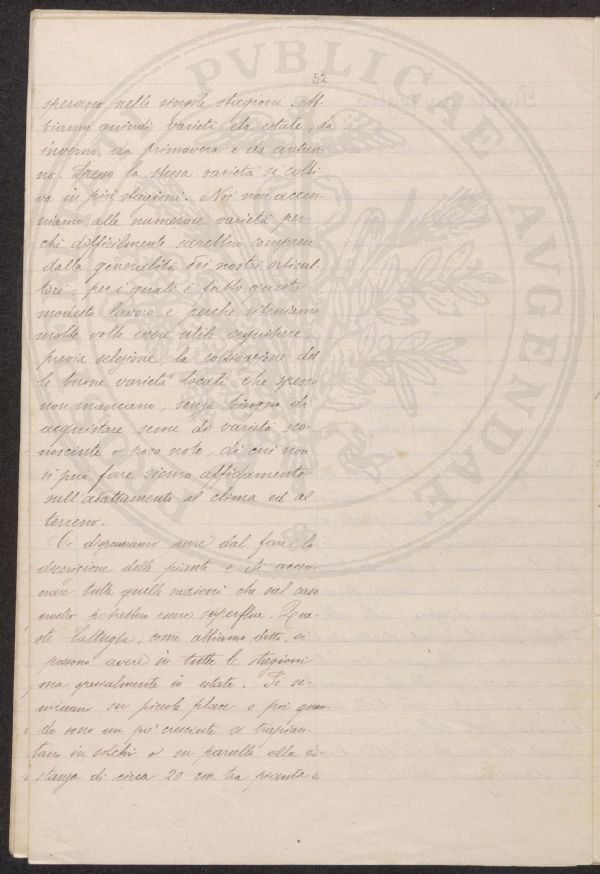 52
sperano nelle singole stagioni. Ab-
biamo quindi varietà da estate, da
inverno, da primavera e da autun-
no. Spesso la stessa varietà si colti-
va in più stagioni. Noi non accen-
niamo alle numerose varietà per-
chè difficilmente sarebbero comprese
dalla generalità dei nostri orticul-
tori, per i quali è fatto questo
modesto lavoro, e perchè riteniamo
molte volte essere utile acquistare,
previa selezione la coltivazione del-
le buone varietà locali che spesso
non mancano, senza bisogno di
acquistare seme di varietà sco-
nosciute o poco note, di cui non
si può fare sicuro affidamento
sull'adattamento al clima ed al
terreno.
Ci dispensiamo pure dal fare la
descrizione delle piante e di accen-
nare tutte quelle nozioni che nel caso
nostro potrebbero essere superflue. Que-
ste lattughe, come abbiamo detto, si
possono avere in tutte le stagioni
ma specialmente in estate. Si se-
minano su piccole place e poi quan-
do sono un po' cresciute si trapian-
tano in solchi o su parcelle alla di-
stanza di circa 20 cm tra pianta e
PVBLICAE
AVGENDAE